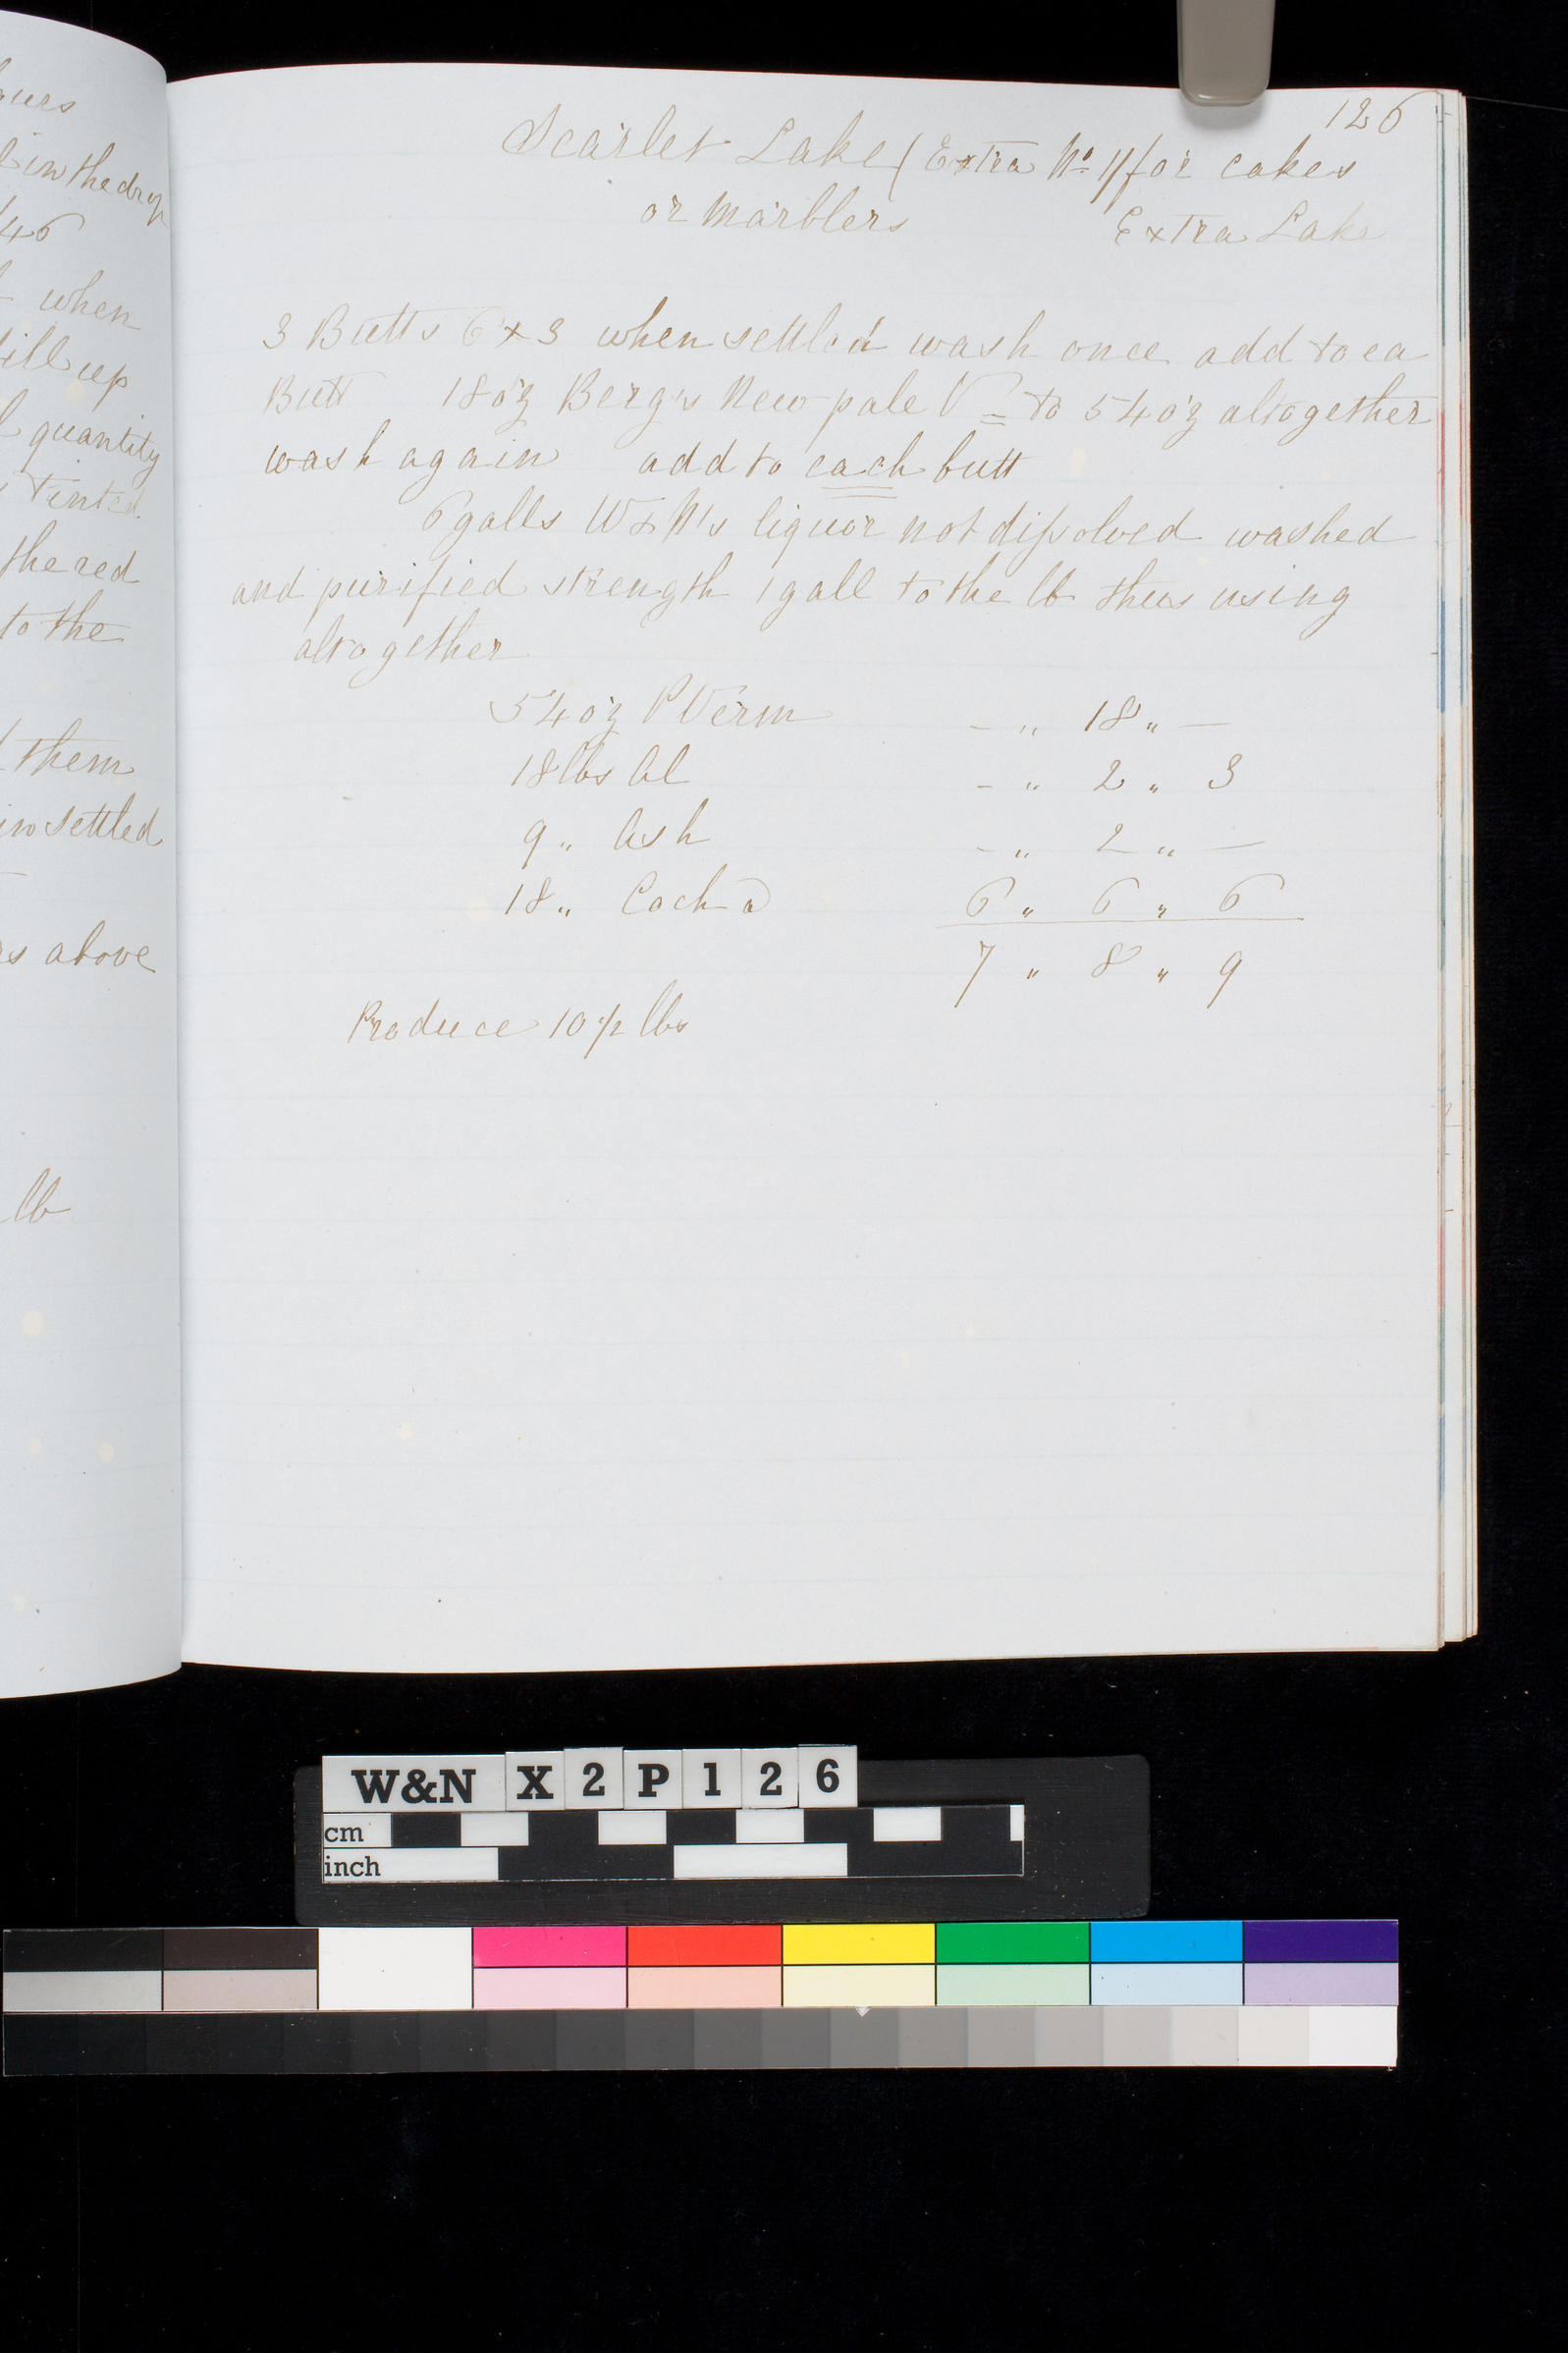 ours
in the dry
46
when
fill up
quantity
tinted
the red
to the
them
in settled
as above
lb
126
Scarlet Lake (Extra No 1) for cakes
or Marblers Extra Lake
3 Butts 6 x 3 when settled wash once add to ea
Butt 18 oz Berg's New pale V = to 54 oz altogether
wash again add to each butt
6 galls W & N's liquor not dissolved washed
and purified strength 1 gall to the lb thus using
altogether
54 oz P Verm - " 18 " -
18 lbs Al - " 2 " 3
9 " Ash - " 2 " -
18 " Coch a 6 " 6 " 6
7 " 8 " 9
Produce 10 1/2 lbs
W&N X2P126
cm
inch